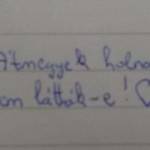 Átmegyek holna
on látták-e! ♡